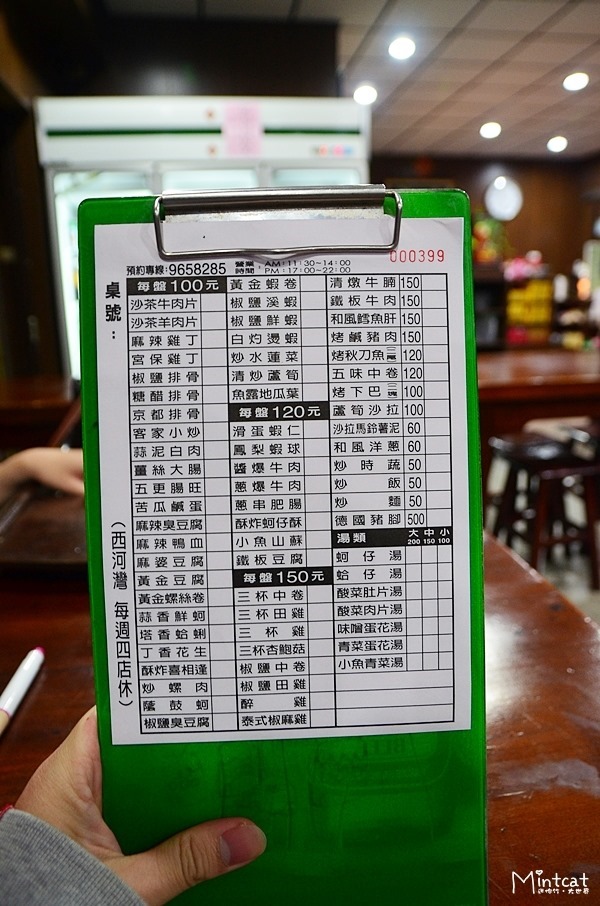 000399
預約專線:9658285 營業時間: AM:11:30~14:00 PM:17:00~22:00
桌號:
(西河灣 每週四店休)
每盤100元
沙茶牛肉片
沙茶羊肉片
麻辣雞丁
宮保雞丁
椒鹽排骨
糖醋排骨
京都排骨
客家小炒
蒜泥白肉
薑絲大腸
五更腸旺
苦瓜鹹蛋
麻辣臭豆腐
麻辣鴨血
麻婆豆腐
黃金豆腐
黃金螺絲卷
蒜香鮮蚵
塔香蛤蜊
丁香花生
酥炸喜相逢
炒螺肉
蔭鼓蚵
椒鹽臭豆腐
黃金蝦卷
椒鹽溪蝦
椒鹽鮮蝦
白灼燙蝦
炒水蓮菜
清炒蘆筍
魚露地瓜葉
每盤120元
滑蛋蝦仁
鳳梨蝦球
醬爆牛肉
蔥爆牛肉
蔥串肥腸
酥炸蚵仔酥
小魚山蘇
鐵板豆腐
每盤150元
三杯中卷
三杯田雞
三杯雞
三杯杏鮑菇
椒鹽中卷
椒鹽田雞
醉雞
泰式椒麻雞
清燉牛腩 150
鐵板牛肉 150
和風鱈魚肝 150
烤鹹豬肉 150
烤秋刀魚 120
五味中卷 120
烤下巴 100
蘆筍沙拉 100
沙拉馬鈴薯泥 60
和風洋蔥 60
炒時蔬 50
炒飯 50
炒麵 50
德國豬腳 500
湯類 大200 中150 小100
蚵仔湯
蛤仔湯
酸菜肚片湯
酸菜肉片湯
味噌蛋花湯
青菜蛋花湯
小魚青菜湯
Mintcat